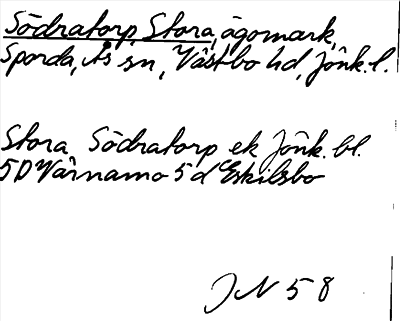 Södratorp, Stora, ägomark,
Sporda, Ås sn, Västbo hd, Jönk. l.
Stora Södratorp ek Jönk. bl.
5D Värnamo 5 d Eskilsbo
JN 58